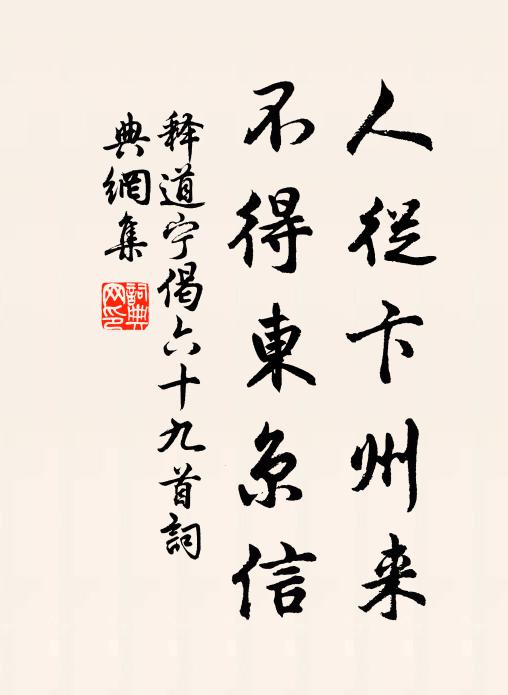 人從卞州来
不得東京信
释道宁偈六十九首詞
典網集
詞典网印